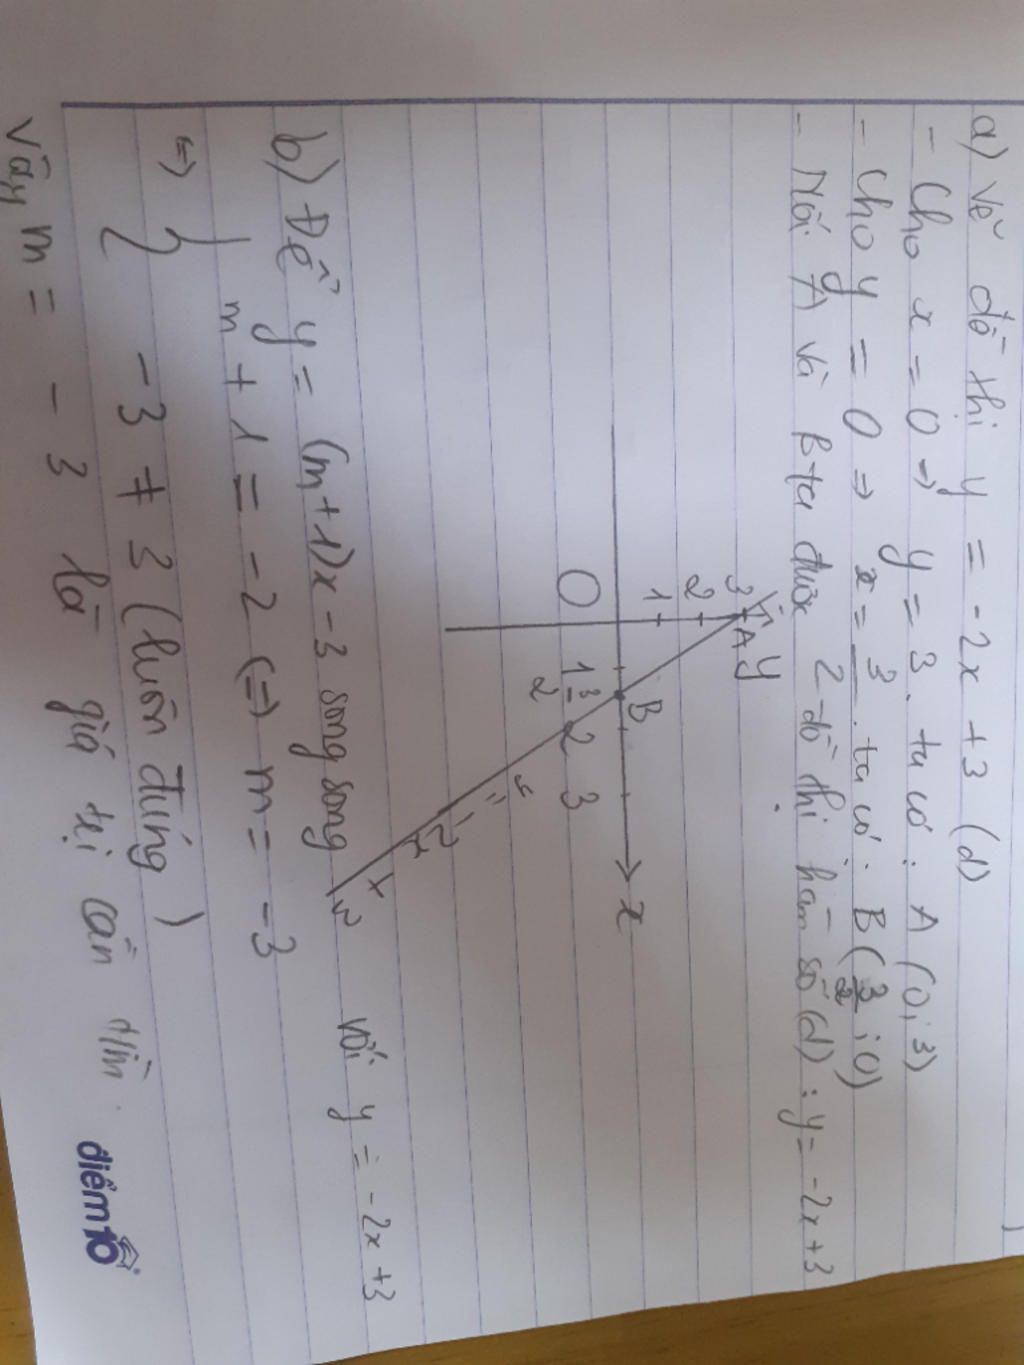 a) Vẽ đồ thị y = -2x +3 (d)
- Cho x = 0 => y = 3. ta có : A (0; 3)
- Cho y = 0 => x = 3/2. ta có : B (3/2 ; 0)
- Nối A và B ta được 2 đồ thị hàm số (d) : y = -2x+3
y
3 A
2
1
B
x
O 1 3/2 2 3
b) Để y = (m+1)x - 3 song song với y = -2x +3
<=> { m + 1 = -2 <=> m = -3
-3 ≠ 3 (luôn đúng)
Vậy m = -3 là giá trị cần tìm.
điểm10